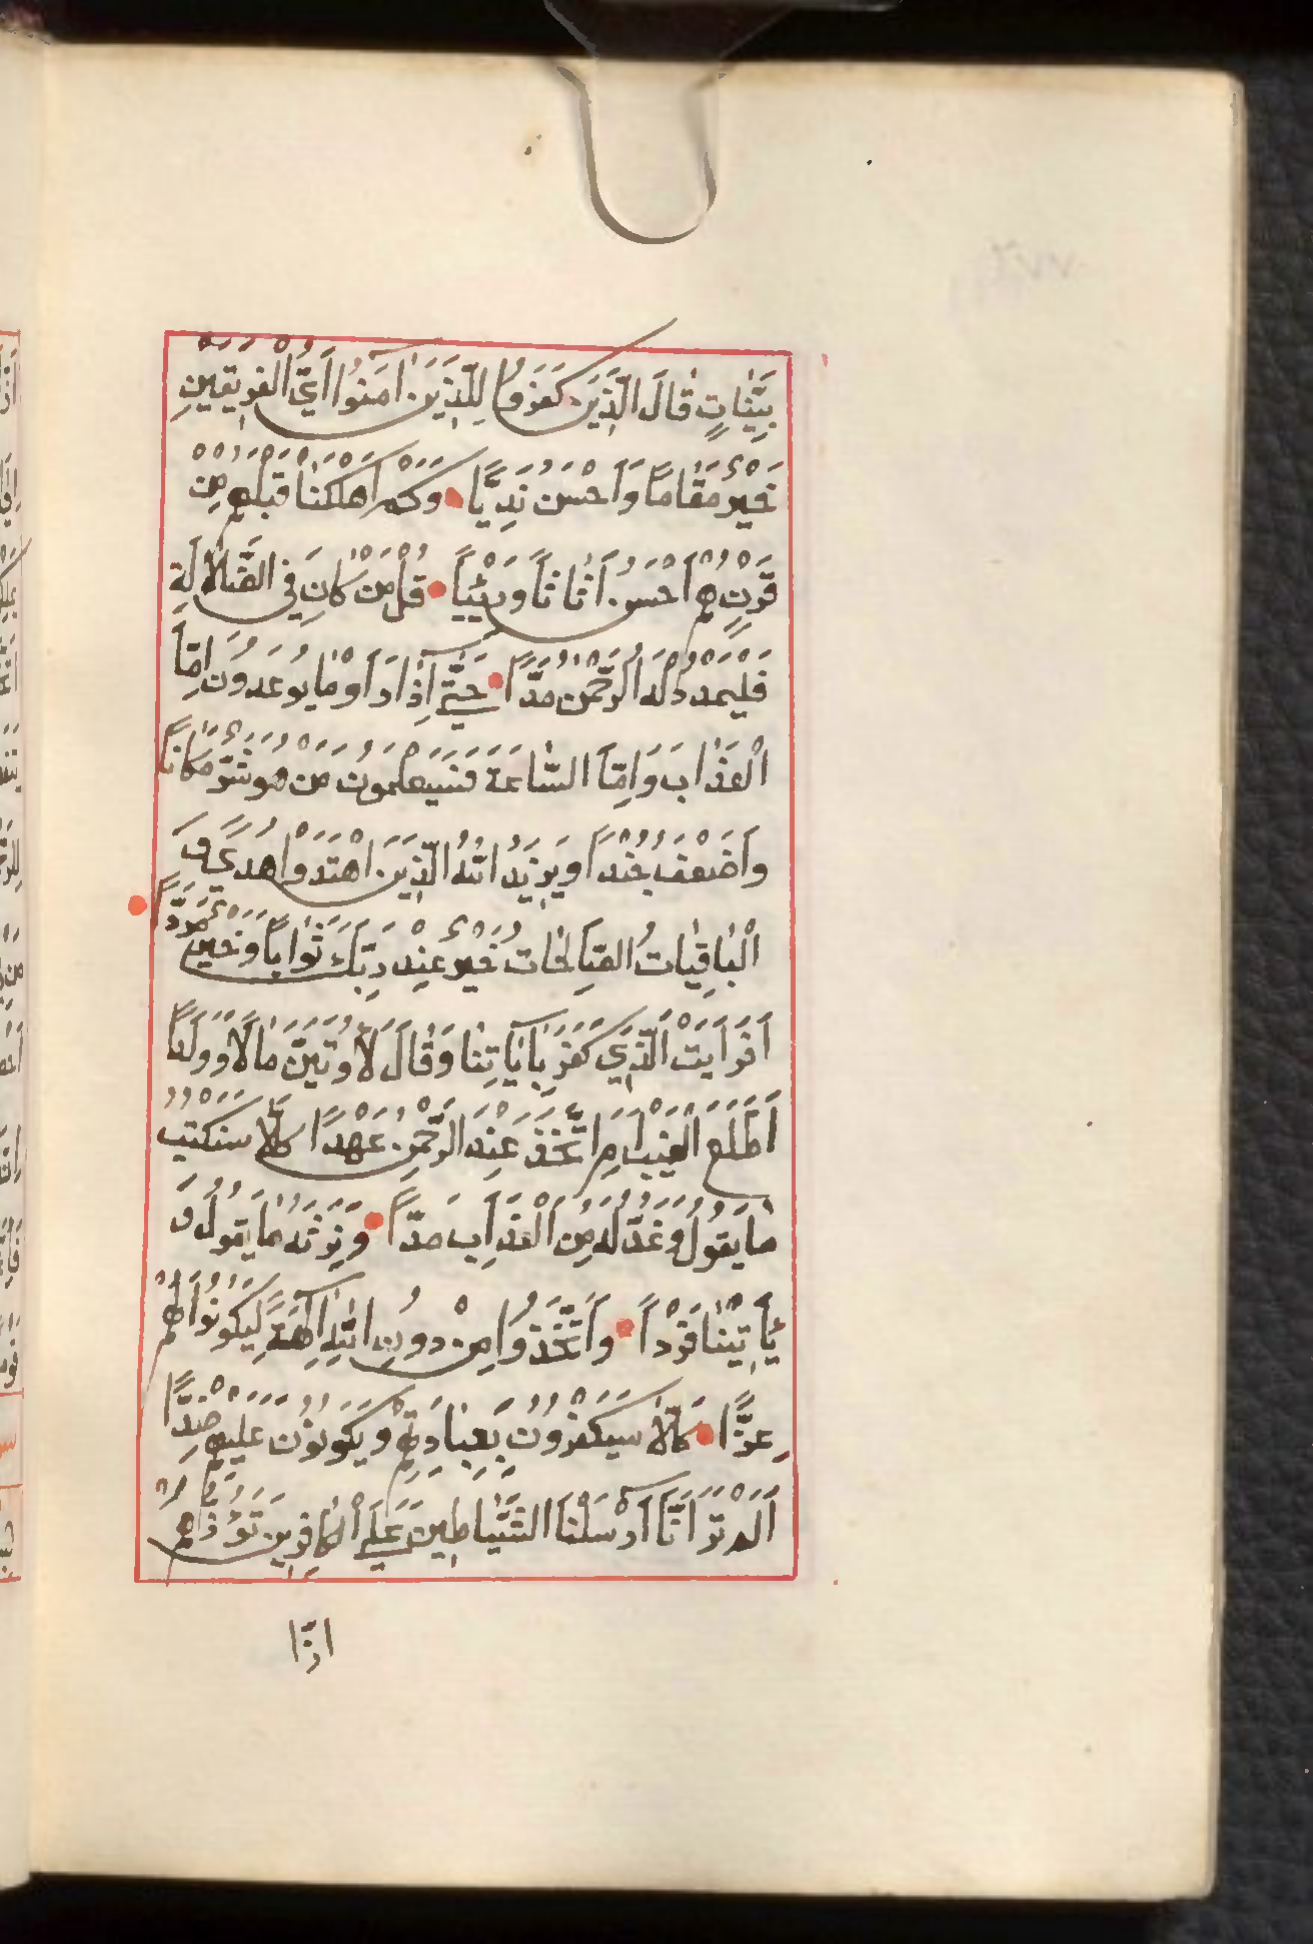 بَيِّنَاتٍ قَالَ الَّذِينَ كَفَرُوا لِلَّذِينَ اٰمَنُوا اَيُّ الْفَرِيقَيْنِ
خَيْرٌ مَقَامًا وَاَحْسَنُ نَدِيًّا وَكَمْ اَهْلَكْنَا قَبْلَهُمْ مِنْ
قَرْنٍ هُمْ اَحْسَنُ اَثَاثًا وَرِئْيًا قُلْ مَنْ كَانَ فِي الضَّلَالَةِ
فَلْيَمْدُدْ لَهُ الرَّحْمٰنُ مَدًّا حَتَّى اِذَا رَاَوْا مَا يُوعَدُونَ اِمَّا
الْعَذَابَ وَاِمَّا السَّاعَةَ فَسَيَعْلَمُونَ مَنْ هُوَ شَرٌّ مَكَانًا
وَاَضْعَفُ جُنْدًا وَيَزِيدُ اللّٰهُ الَّذِينَ اهْتَدَوْا هُدًى وَ
الْبَاقِيَاتُ الصَّالِحَاتُ خَيْرٌ عِنْدَ رَبِّكَ ثَوَابًا وَخَيْرٌ مَرَدًّا
اَفَرَاَيْتَ الَّذِي كَفَرَ بِاٰيَاتِنَا وَقَالَ لَاُوتَيَنَّ مَالًا وَوَلَدًا
اَطَّلَعَ الْغَيْبَ اَمِ اتَّخَذَ عِنْدَ الرَّحْمٰنِ عَهْدًا كَلَّا سَنَكْتُبُ
مَا يَقُولُ وَنَمُدُّ لَهُ مِنَ الْعَذَابِ مَدًّا وَنَرِثُهُ مَا يَقُولُ وَ
يَاْتِينَا فَرْدًا وَاتَّخَذُوا مِنْ دُونِ اللّٰهِ اٰلِهَةً لِيَكُونُوا لَهُمْ
عِزًّا كَلَّا سَيَكْفُرُونَ بِعِبَادَتِهِمْ وَيَكُونُونَ عَلَيْهِمْ ضِدًّا
اَلَمْ تَرَ اَنَّا اَرْسَلْنَا الشَّيَاطِينَ عَلَى الْكَافِرِينَ تَؤُزُّهُمْ
ازًّا